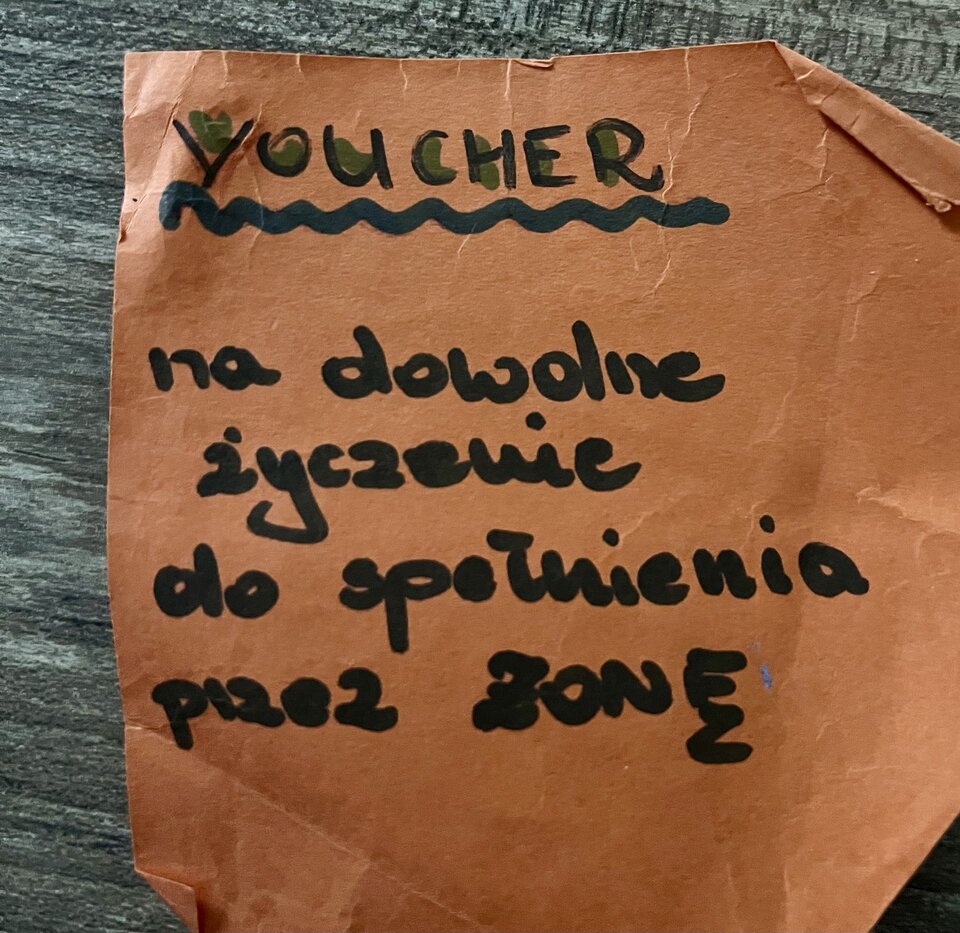 VOUCHER
na dowolne
życzenie
do spełnienia
przez ŻONĘ